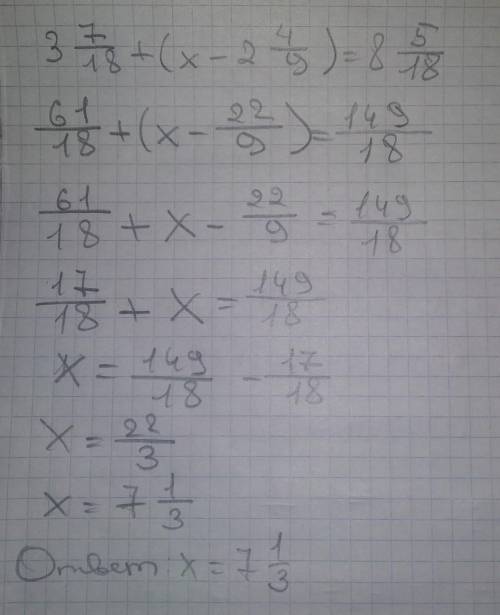 3 7/18 + (x - 2 4/9) = 8 5/18
61/18 + (x - 22/9) = 149/18
61/18 + x - 22/9 = 149/18
17/18 + x = 149/18
x = 149/18 - 17/18
x = 22/3
x = 7 1/3
Ответ: x = 7 1/3